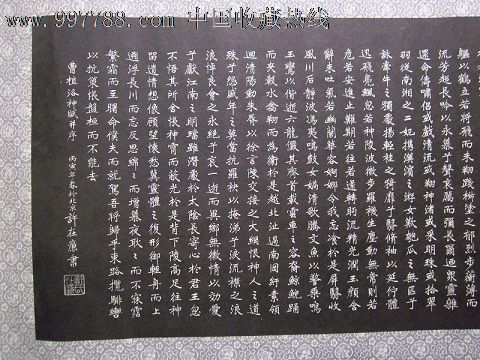 www.997788.com 中国收藏热线
軀以鶴立若將飛而未翔踐椒塗之郁烈步蘅薄而
流芳超長吟以永慕兮聲哀厲而彌長爾迺眾靈雜
遝命儔嘯侶或戲清流或翔神渚或采明珠或拾翠
羽從南湘之二妃攜漢濱之游女歎匏瓜之無匹兮
詠牽牛之獨處揚輕袿之猗靡兮翳脩袖以延佇體
迅飛鳧飄忽若神陵波微步羅襪生塵動無常則若
危若安進止難期若往若還轉眄流精光潤玉顏含
辭未吐氣若幽蘭華容婀娜令我忘湌於是屏翳收
風川后靜波馮夷鳴鼓女媧清歌騰文魚以警乘鳴
玉鸞以偕逝六龍儼其齊首載雲車之容裔鯨鯢踊
而夾轂水禽翔而為衛於是越北沚過南岡紆素領
迴清陽動朱脣以徐言陳交接之大綱恨神人之道
殊兮怨盛年之莫當抗羅袂以掩涕兮淚流襟之浪
浪悼良會之永絕兮哀一逝而異鄉無微情以效愛
兮獻江南之明璫雖潛處於太陰長寄心於君王忽
不悟其所舍悵神宵而蔽光於是背下陵高足往神
留遺情想像顧望懷愁冀靈體之復形御輕舟而上
遡浮長川而忘反思緜緜而增慕夜耿耿而不寐霑
繁霜而至曙命僕夫而就駕吾將歸乎東路攬騑轡
以抗策悵盤桓而不能去
曹植洛神賦并序
丙寅年春於北京許在廉書